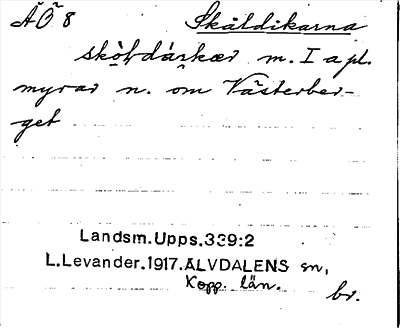 ÄÖ 8 Skåldikarna
skò̀ldáskær m. I a pl.
myrar n. om Västerber-
get
Landsm.Upps.339:2
L.Levander.1917.ÄLVDALENS sn,
Kopp. län.
br.